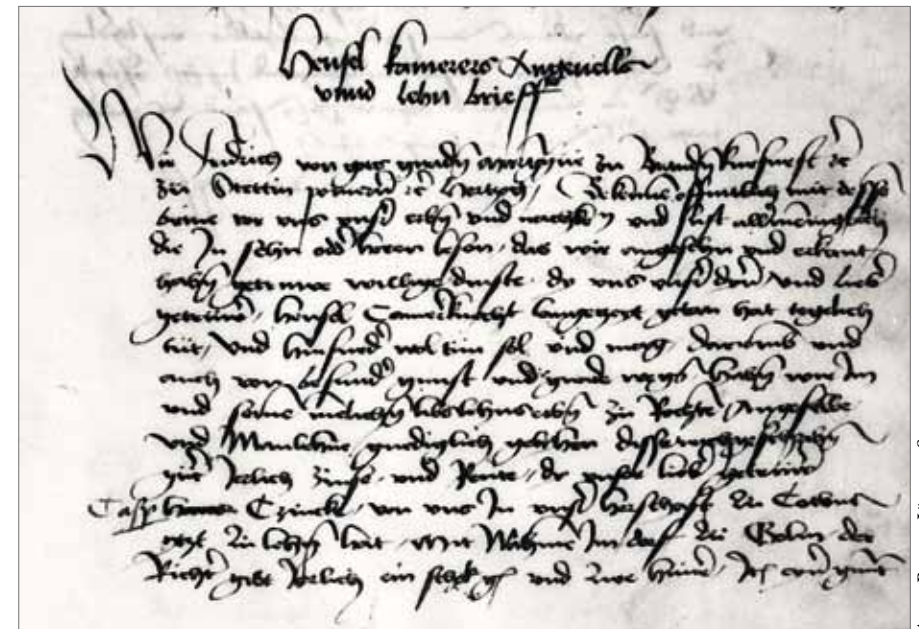 Hensel kamerers Angeuelle
vnnd lehn brieff
Wir Fridrich von gots gnaden Marggraue zu Brandburg kurfurst ꝛc
zu Stettin pomern ꝛc hertzog, Bekennen offintlich mit dessem
briue vor vns vnser erben vnd nachkomen vnd sust allermeniglich
die In sehn oder horen lesen, das wir angesehn vnd erkant
haben getruwe willige dinste, die vns vnser diner vnd lieber
getruwer, Hensel Camerknecht langetzyt getan hat teglich
tut, vnd hinfurder wol tun sol vnd mag, dorumb vnd
auch von besunder gunst vnd gnade wegen haben wir Im
vnd seinen menlichen libs lehns erben zu Rechte Angefelle
vnd Manlehne gnediglich gelihen disse nachgeschriben
guter Jerlich zinse, vnd Rente, die vnser lieber getruwer
Casper Czincke, von vns In vnser herschaft zu Cotbus
zu lehen hat, Mit Nahmen Im dorf zu Golin der
Richter gibt Jerlich ein schok gr vnd zwe huner,